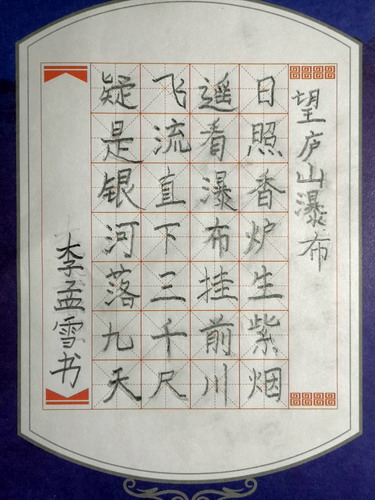 望庐山瀑布
日照香炉生紫烟
遥看瀑布挂前川
飞流直下三千尺
疑是银河落九天
李孟雪书